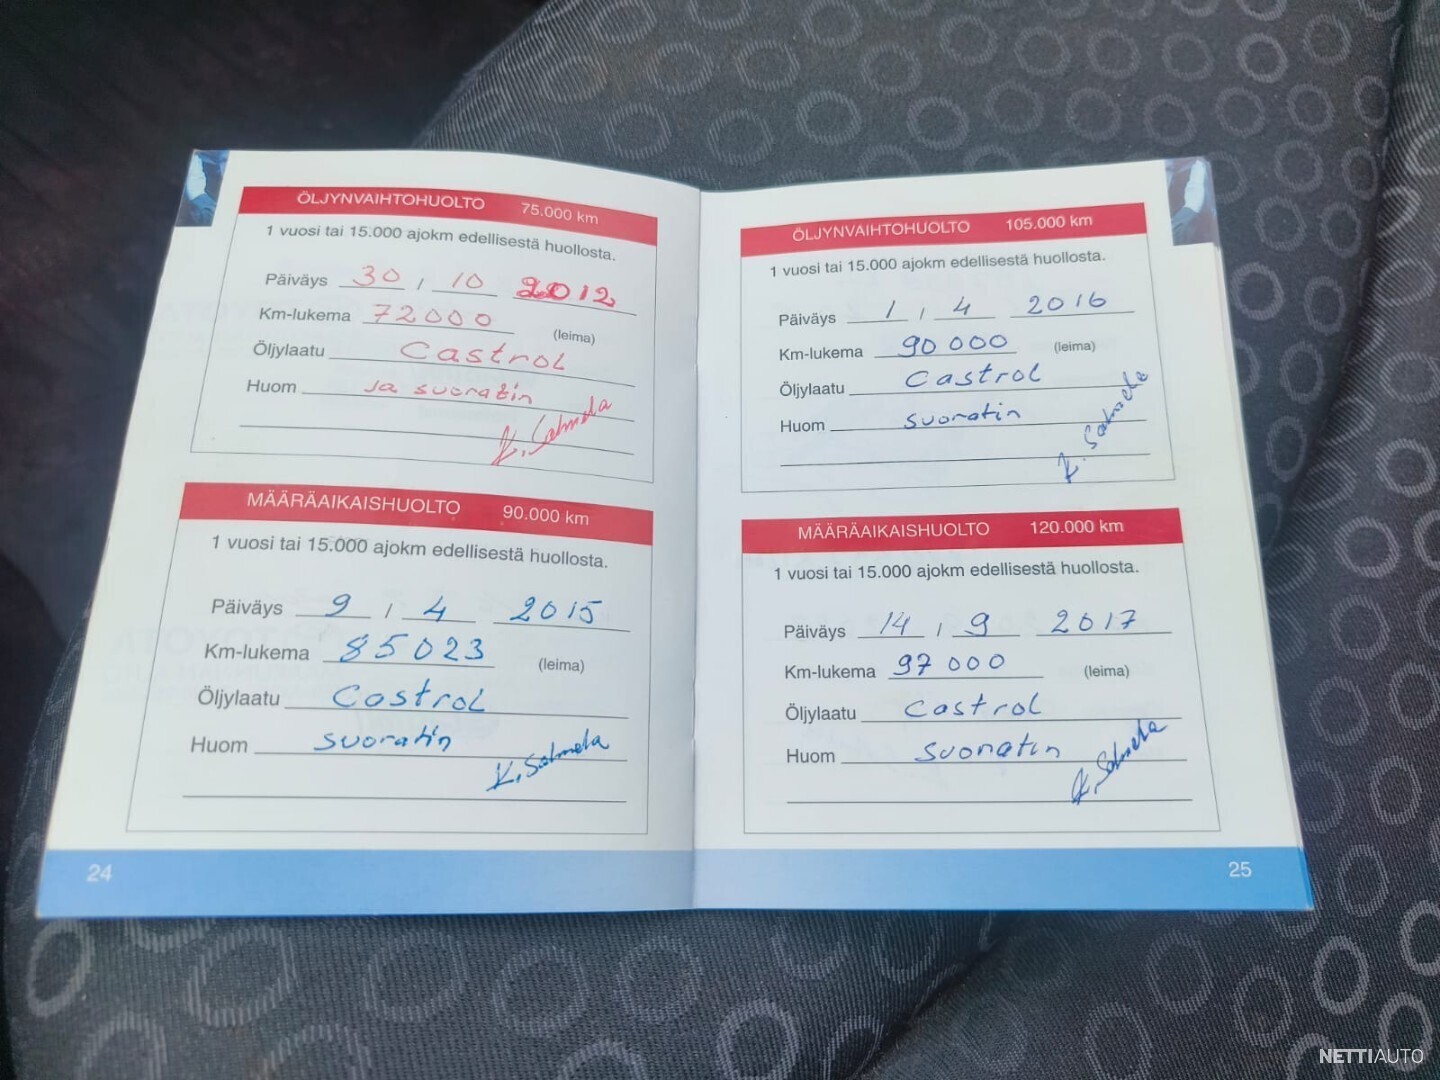 ÖLJYNVAIHTOHUOLTO 75.000 km
1 vuosi tai 15.000 ajokm edellisestä huollosta.
Päiväys 30 / 10 2012
Km-lukema 72000 (leima)
Öljylaatu Castrol
Huom ja suoratin
K. Salmela
MÄÄRÄAIKAISHUOLTO 90.000 km
1 vuosi tai 15.000 ajokm edellisestä huollosta.
Päiväys 9 / 4 2015
Km-lukema 85023 (leima)
Öljylaatu Castrol
Huom suoratin
K. Salmela
24
ÖLJYNVAIHTOHUOLTO 105.000 km
1 vuosi tai 15.000 ajokm edellisestä huollosta.
Päiväys 1 / 4 2016
Km-lukema 90 000 (leima)
Öljylaatu Castrol
Huom suoratin
K. Salmela
MÄÄRÄAIKAISHUOLTO 120.000 km
1 vuosi tai 15.000 ajokm edellisestä huollosta.
Päiväys 14 / 9 2017
Km-lukema 97 000 (leima)
Öljylaatu Castrol
Huom suoratin
K. Salmela
25
NETTIAUTO